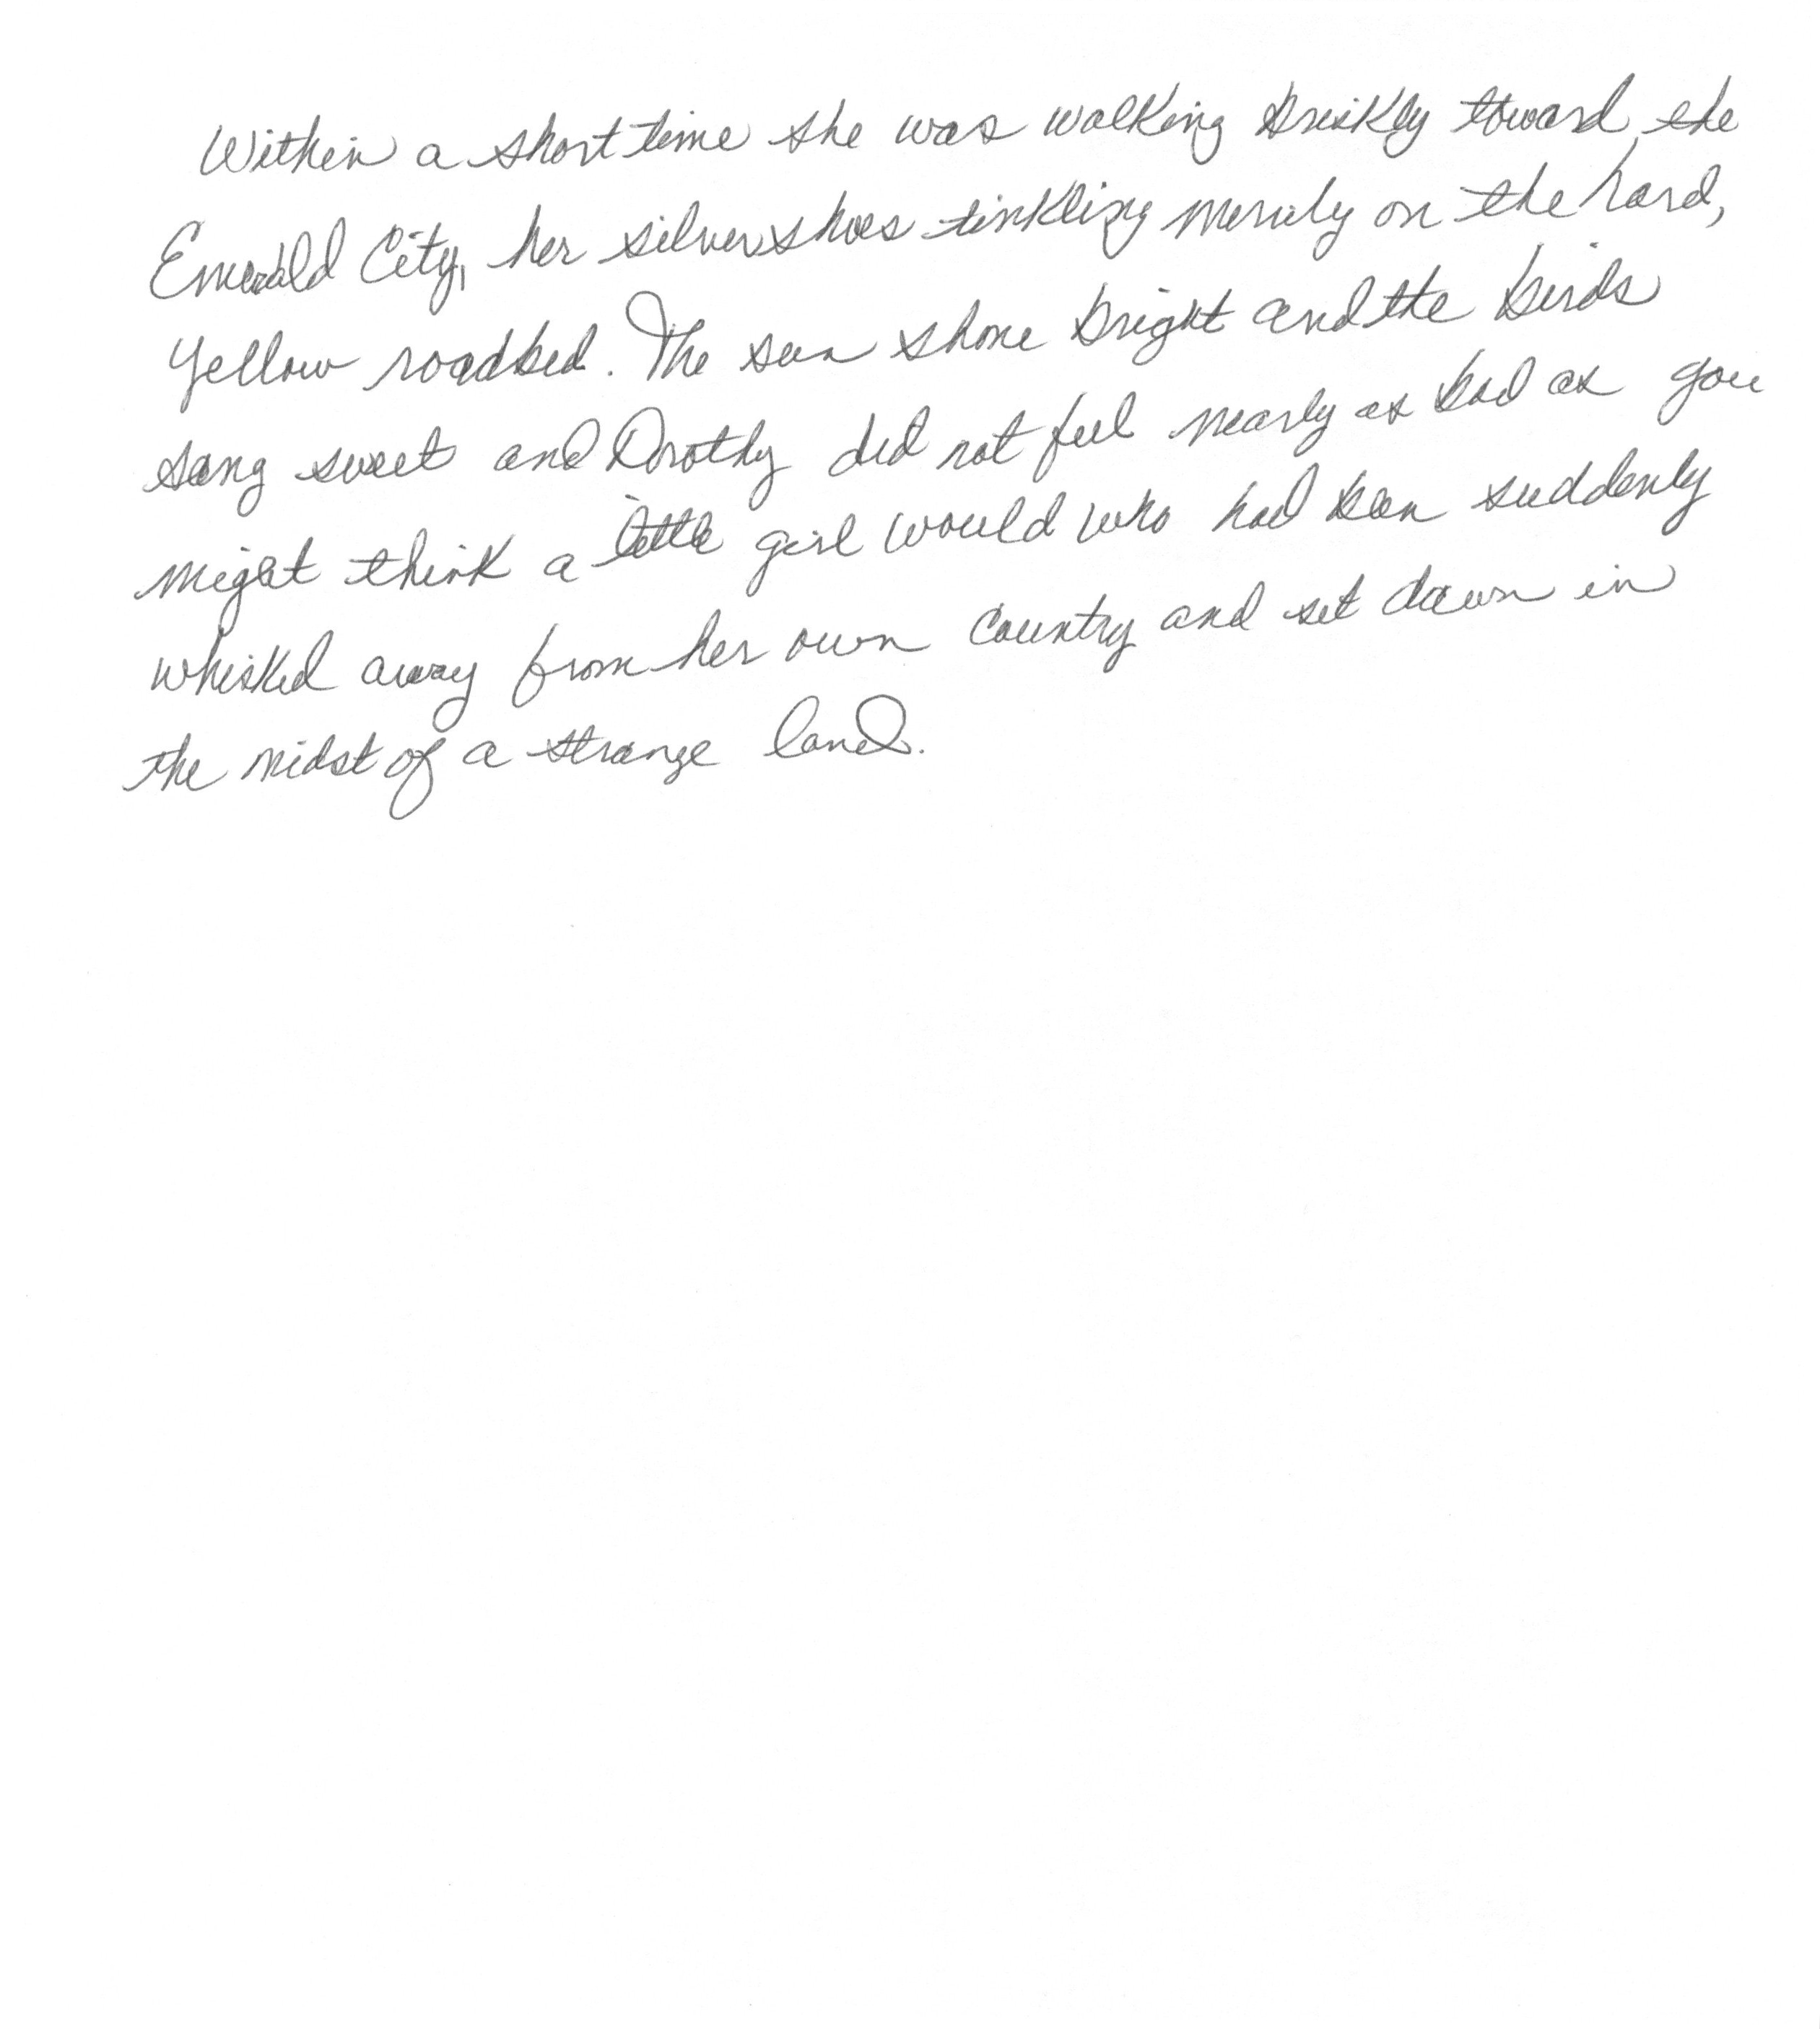 Within a short time she was walking briskly toward the
Emerald City, her silver shoes tinkling merrily on the hard,
Yellow roadbed. The sun shone bright and the birds
sang sweet and Dorothy did not feel nearly as bad as you
might think a little girl would who had been suddenly
whisked away from her own country and set down in
the midst of a strange land.